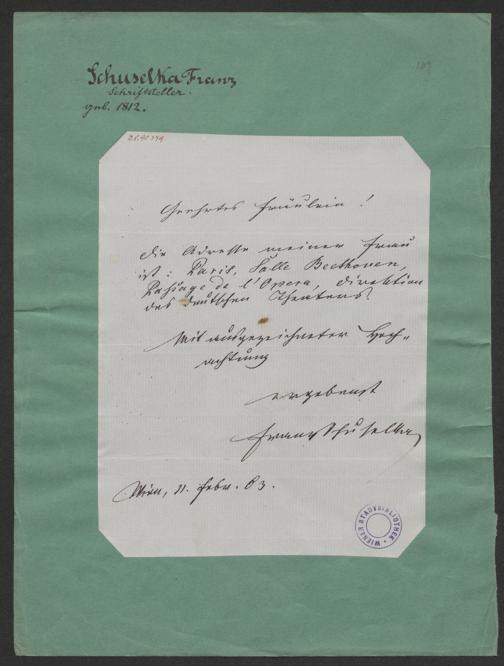 Schuselka Franz
Schriftsteller.
geb. 1812.
Geehrtes Fräulein!
Die Adresse meiner Frau
ist: Paris, Salle Beethoven,
Passage de l'Opera, Direktion
des deutschen Theaters.
Mit ausgezeichneter Hoch-
achtung
ergebenst
Franz Schuselka
Wien, 11. Febr. 63.
WIENER STADTBIBLIOTHEK